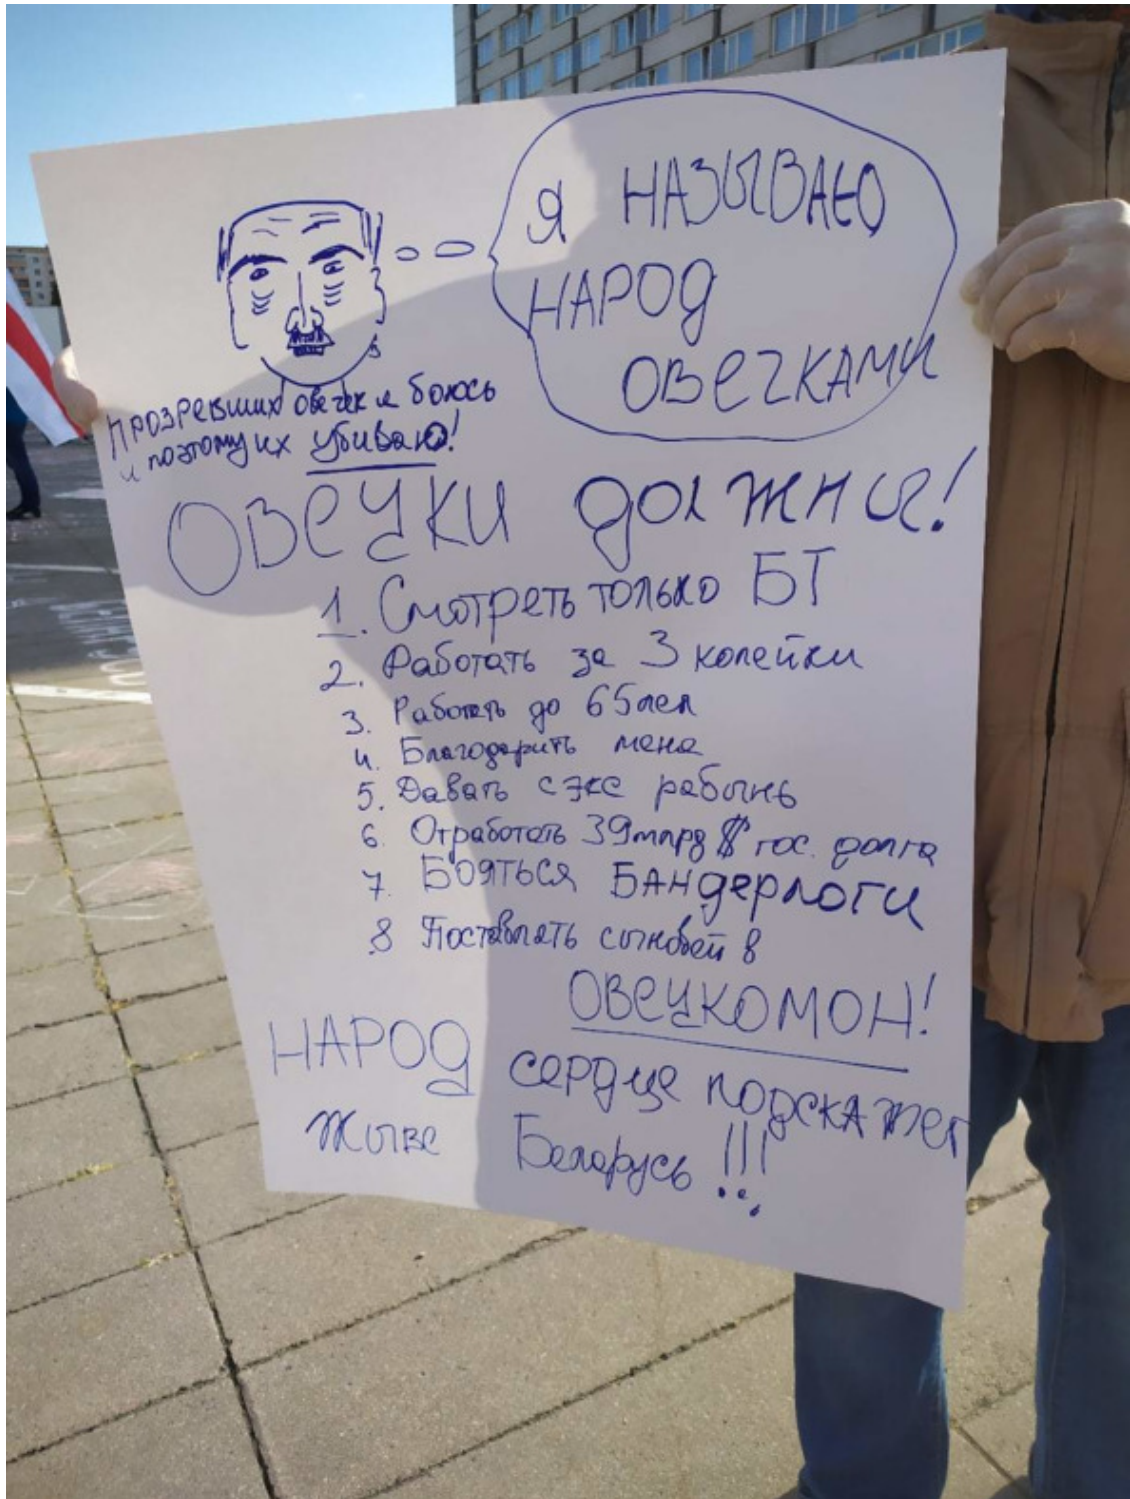 Я НАЗЫВАЮ
НАРОД
ОВЕЧКАМИ
Прозревших овечек я боюсь
и поэтому их убиваю!
ОВЕЧКИ должны!
1. Смотреть только БТ
2. Работать за 3 копейки
3. Работать до 65 лет
4. Благодарить меня
5. Давать сэкс рабынь
6. Отработать 39 млрд $ гос. долга
7. Бояться Бандерлоги
8 Поставлять сыновей в
ОВЕЧКОМОН!
НАРОД сердце подскажет
Жыве Беларусь !!!